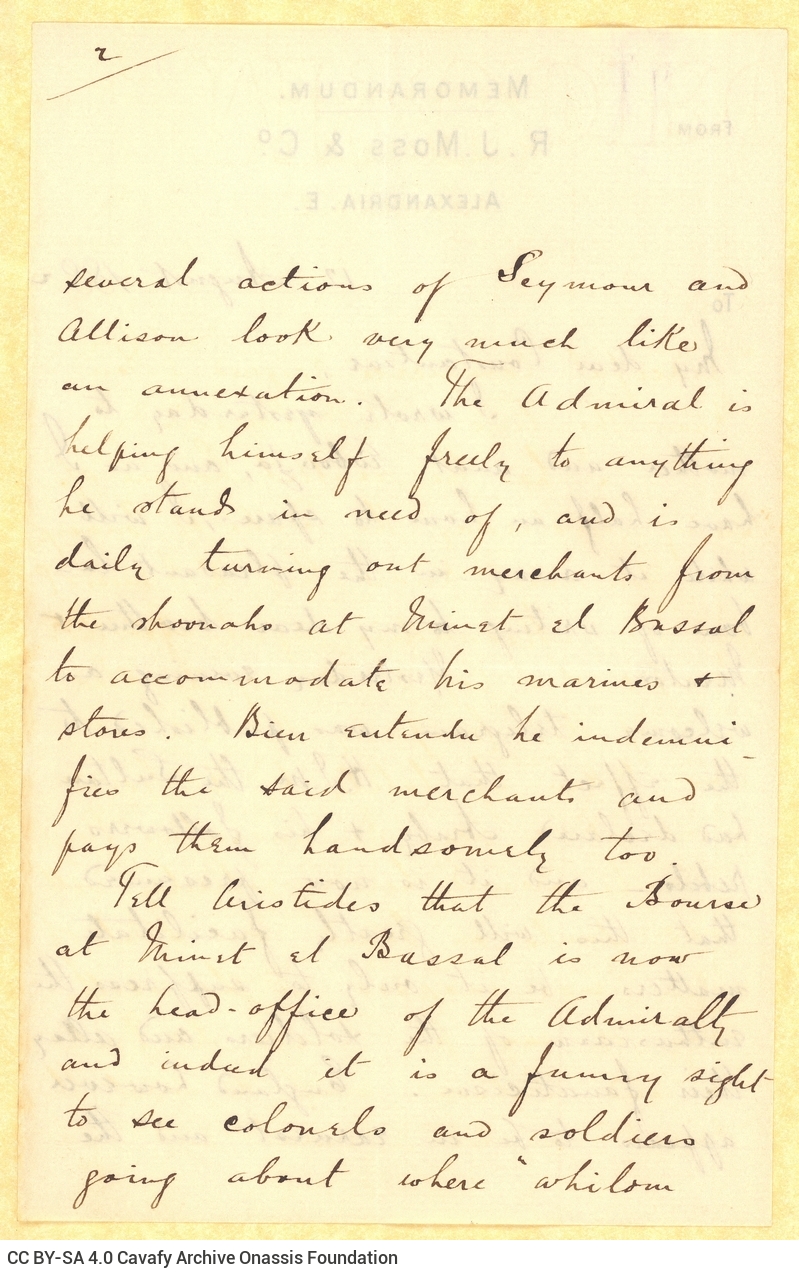 2
MEMORANDUM.
FROM
R. J. MOSS & Co
ALEXANDRIA. E.
To
several actions of Seymour and
Allison look very much like
an annexation. The Admiral is
helping himself freely to anything
he stands in need of, and is
daily turning out merchants from
the shoonahs at Minet el Bassal
to accommodate his marines +
stores. Bien entendu he indemni-
fies the said merchants and
pays them handsomely too.
Tell Aristides that the Bourse
at Minet el Bassal is now
the head-office of the Admiralty
and indeed it is a funny sight
to see colonels and soldiers
going about where "whilom
CC BY-SA 4.0 Cavafy Archive Onassis Foundation